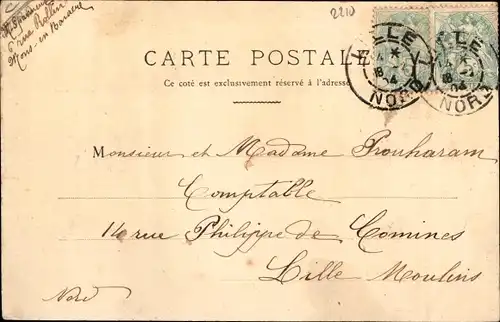 2210
rue
Mons-en-Baroeul
CARTE POSTALE
Ce coté est exclusivement réservé à l'adresse
LILLE
NORD
LILLE
NORD
04
Monsieur et Madame Prouharam
Comptable
14 rue Philippe de Comines
Lille Moulins
Nord